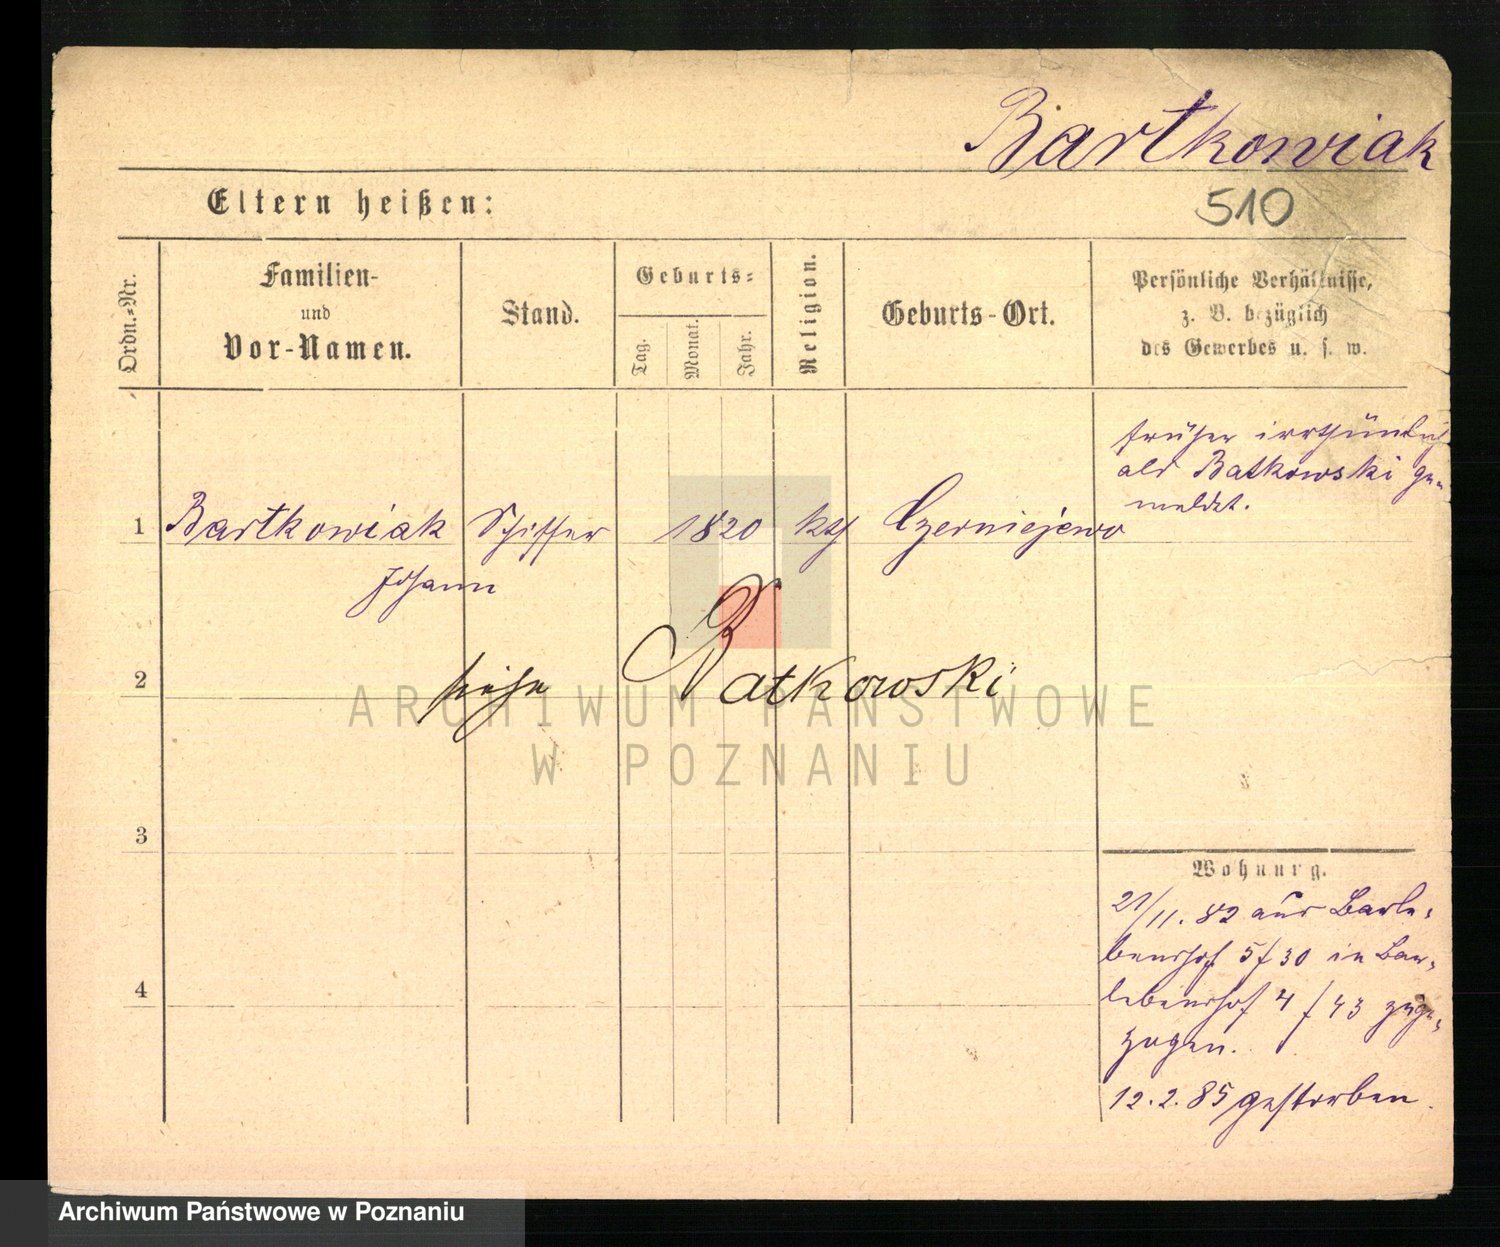 Bartkowiak
Eltern heißen:
510
Ordn.-Nr.
Familien-
und
Vor-Namen.
Stand.
Geburts-
Tag.
Monat.
Jahr.
Religion.
Geburts-Ort.
Persönliche Verhältnisse,
z. B. bezüglich
des Gewerbes u. s. w.
früher irrthümlich
als Batkowski ge-
meldet.
1 Bartkowiak Schiffer 1820 kth Czerniejewo
Johann
2 siehe Batkowski
ARCHIWUM PAŃSTWOWE
W POZNANIU
3
Wohnung.
21/11. 82 aus Barle-
benshof 5/30 in Bar-
4
lebenshof 4/43 zuge-
zogen.
12. 2. 85 gestorben.
Archiwum Państwowe w Poznaniu